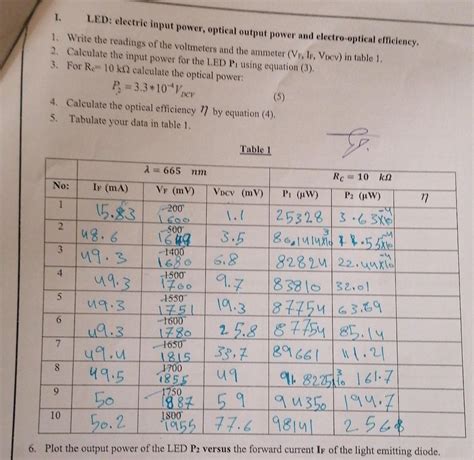 I. LED: electric input power, optical output power and electro-optical efficiency.
1. Write the readings of the voltmeters and the ammeter (VF, IF, VDCV) in table 1.
2. Calculate the input power for the LED P1 using equation (3).
3. For Rc= 10 kΩ calculate the optical power:
P2 = 3.3*10⁻⁴VDCV (5)
4. Calculate the optical efficiency η by equation (4).
5. Tabulate your data in table 1.
Table 1
λ = 665 nm RC = 10 kΩ
No: IF (mA) VF (mV) VDCV (mV) P1 (μW) P2 (μW) η
1 15.83 200 1600 1.1 25328 3.63x10⁻⁴
2 48.6 500 3.5
3 49.3 1400 1680 6.8 82824 22.44x10⁻⁴
4 49.3 1500 1700 9.7 83810 32.01
5 49.3 1550 1751 19.3 87754 63.69
6 49.3 1600 1780 25.8 87754 85.14
7 49.4 1650 1815 33.7 89661 111.21
8 49.5 1700 1855 49 161.7
9 50 1750 1887 59 94350 194.7
10 50.2 1800 1955 77.6 98141 256.8
6. Plot the output power of the LED P2 versus the forward current IF of the light emitting diode.